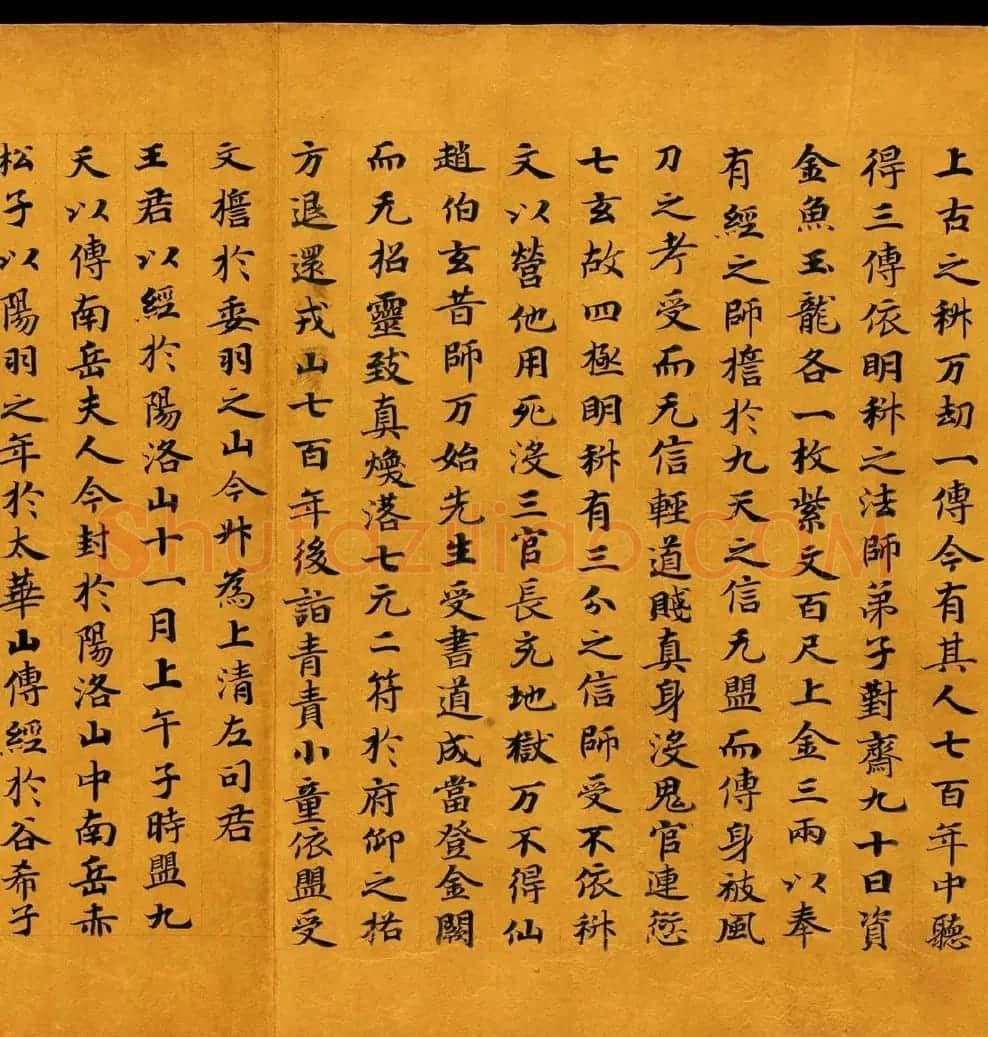 上古之科万劫一傳今有其人七百年中聽
得三傳依明科之法師弟子對齋九十日資
金魚玉龍各一枚紫文百尺上金三兩以奉
有經之師擔於九天之信无盟而傳身被風
刀之考受而无信輕道賤真身沒鬼官連愆
七玄故四極明科有三分之信師受不依科
文以營他用死沒三官長充地獄万不得仙
趙伯玄昔師万始先生受書道成當登金闕
而无招靈致真煥落七元二符於府仰之格
方退還戎山七百年後詣青責小童依盟受
文擔於委羽之山今昇為上清左司君
王君以經於陽洛山十一月上午子時盟九
天以傳南岳夫人今封於陽洛山中南岳赤
松子以陽羽之年於太華山傳經於谷希子
Shufaziliao.COM